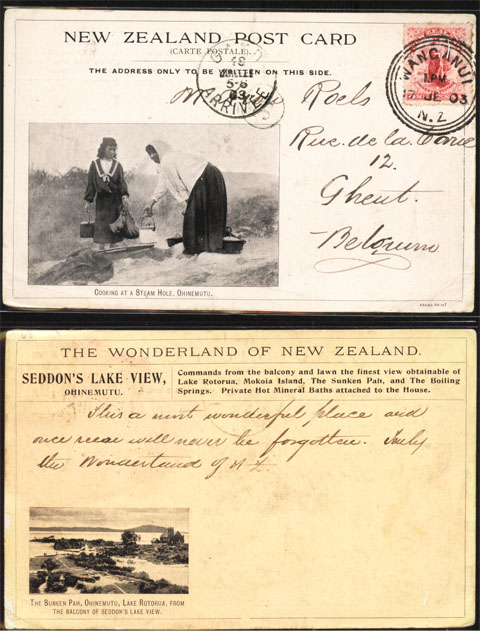 NEW ZEALAND POST CARD
(CARTE POSTALE)
THE ADDRESS ONLY TO BE WRITTEN ON THIS SIDE.
WANGANUI
1 PM
JE 03
N.Z
GAND
18
5-6
ARRIVÉE
Roels
Rue de la
12.
Ghent.
Belgium
COOKING AT A STEAM HOLE, OHINEMUTU.
THE WONDERLAND OF NEW ZEALAND.
SEDDON'S LAKE VIEW,
OHINEMUTU.
Commands from the balcony and lawn the finest view obtainable of
Lake Rotorua, Mokoia Island, The Sunken Pah, and The Boiling
Springs. Private Hot Mineral Baths attached to the House.
This a most wonderful place and
once seen will never be forgotten. Truly
the Wonderland of N Z.
THE SUNKEN PAH, OHINEMUTU, LAKE ROTORUA, FROM
THE BALCONY OF SEDDON'S LAKE VIEW.